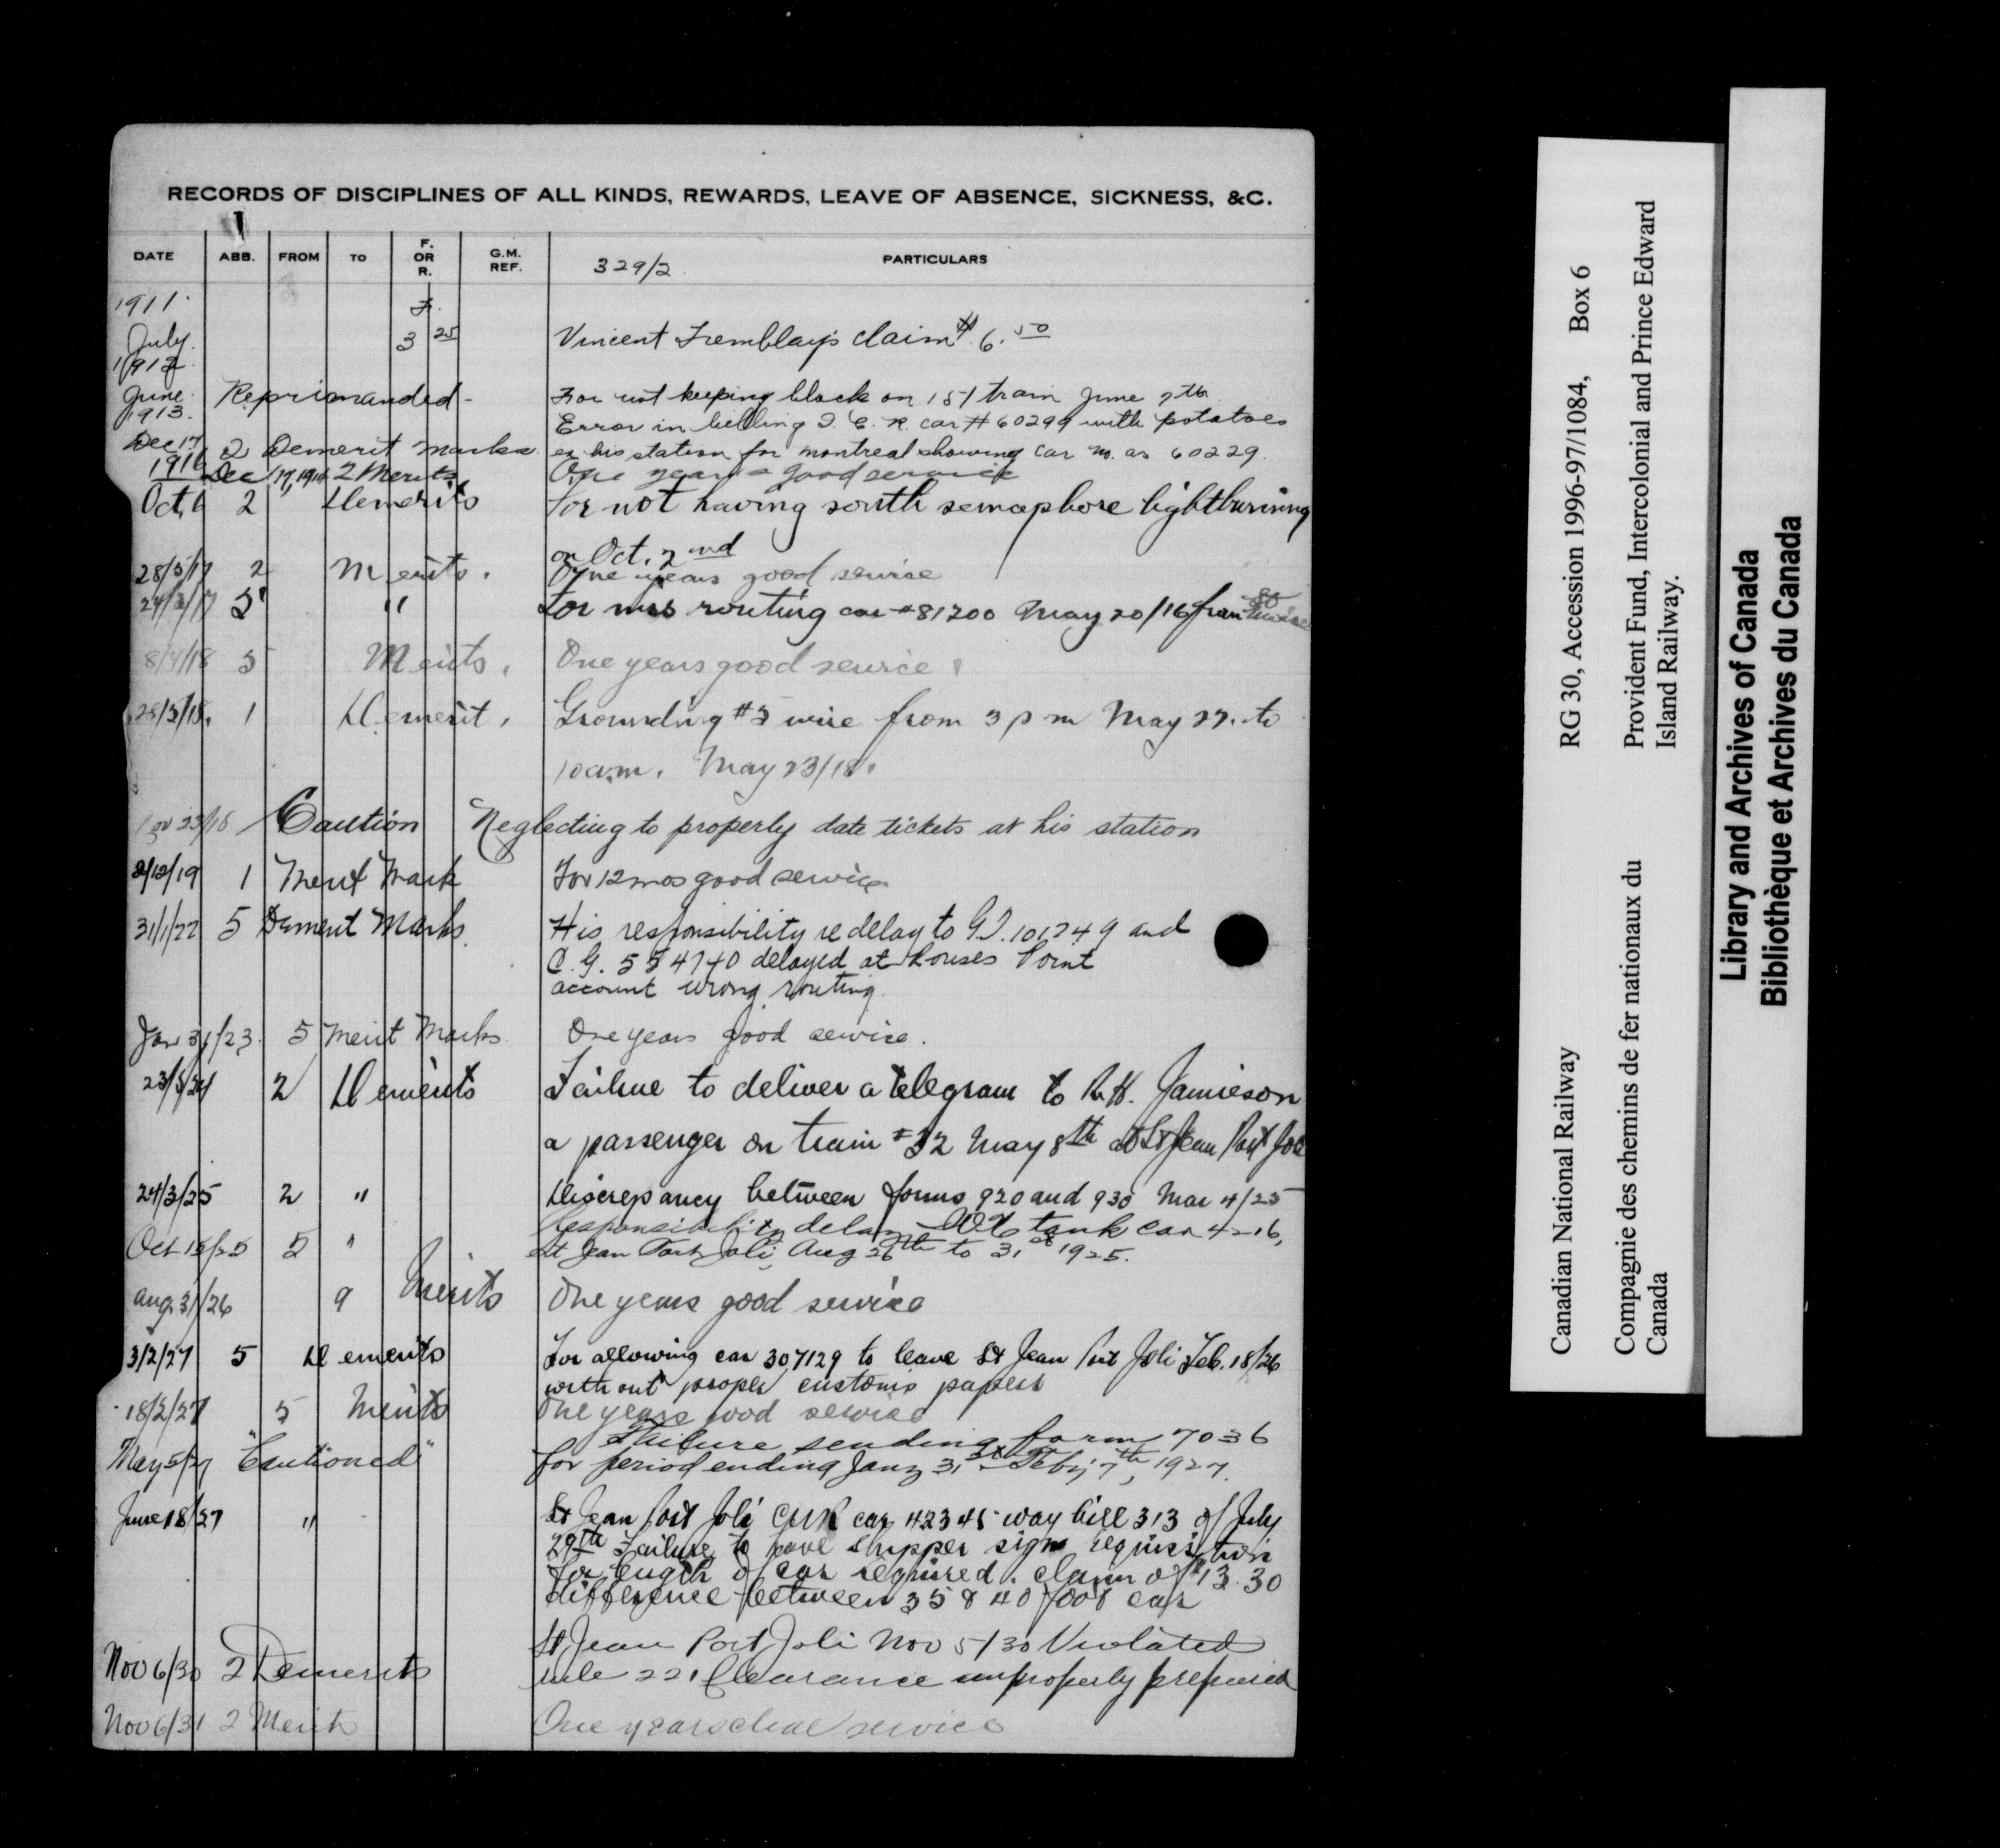 RECORDS OF DISCIPLINES OF ALL KINDS, REWARDS, LEAVE OF ABSENCE, SICKNESS, &C.
DATE ABB. FROM TO F. OR R. G.M. REF. 329/2 PARTICULARS
1911. F.
July 3 25 Vincent Tremblay's claim $6.50
1912
June Reprimanded - For not keeping block on 151 train June 7th
1913. Error in billing I.C.R. car #60299 with potatoes
Dec 17 2 Demerit marks. ex his station for montreal showing car no. as 60229.
1916 Dec 17, 1914 2 Merits One years good service
Oct, 6 2 Demerits For not having south semaphore light burning
on Oct. 2nd
28/5/17 2 Merits. One years good service
5 " For mis routing car #81200 May 20/16 from
8/4/18 5 Merits. One years good service
28/5/18. 1 Demerit. Grounding #3 wire from 3 p m May 22. to
10 a.m. May 23/18.
23/18 Caution Neglecting to properly date tickets at his station
2/12/19 1 Merit Mark For 12 mos good service
31/1/22 5 Demerit Marks. His responsibility re delay to G.T. 101249 and
C.G. 554740 delayed at Rouses Point
account wrong routing.
Jan 31/23. 5 Merit Marks One years good service.
23/5/24 2 Demerits Failure to deliver a telegram to R.H. Jamieson
a passenger on train #32 May 8th at St Jean Port Joli
24/3/25 2 " Discrepancy between forms 920 and 930 Mar 4/25
Responsibility delay tank car 4216,
Oct 15/25 5 " St Jean Port Joli, Aug 26th to 31st 1925.
Aug. 31/26 9 Merits One years good service
3/2/27 5 Demerits For allowing car 307129 to leave St Jean Port Joli Feb. 18/26
without proper customs papers
18/2/27 5 Merits One years good service
Failure sending form 7036
May 5/27 "Cautioned" for period ending Jany 31st Feby 7th, 1927.
June 18/27 " St Jean Port Joli CNR car 42345 way bill 313 of July
29th Failure to have shipper sign requisition
for length of car required. claim of $13.30
difference between 35 & 40 foot car
St Jean Port Joli Nov 5/30 Violated
Nov 6/30 2 Demerits rule 221 Clearance improperly prepared
Nov 6/31 2 Merits One years clear service
Canadian National Railway RG 30, Accession 1996-97/1084, Box 6
Compagnie des chemins de fer nationaux du Canada
Provident Fund, Intercolonial and Prince Edward Island Railway.
Library and Archives of Canada
Bibliothèque et Archives du Canada